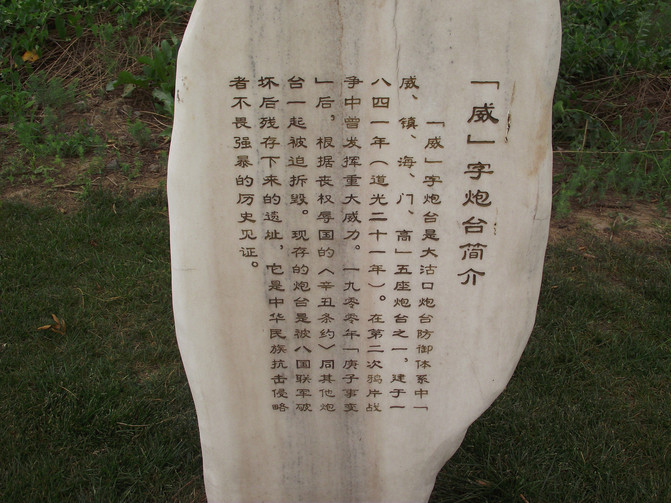 「威」字炮台简介
「威」字炮台是大沽口炮台防御体系中「
威、镇、海、门、高」五座炮台之一，建于一
八四一年（道光二十一年）。在第二次鸦片战
争中曾发挥重大威力。一九零零年「庚子事变
」后，根据丧权辱国的〈辛丑条约〉同其他炮
台一起被迫折毁。现存的炮台是被八国联军破
坏后残存下来的遗址，它是中华民族抗击侵略
者不畏强暴的历史见证。